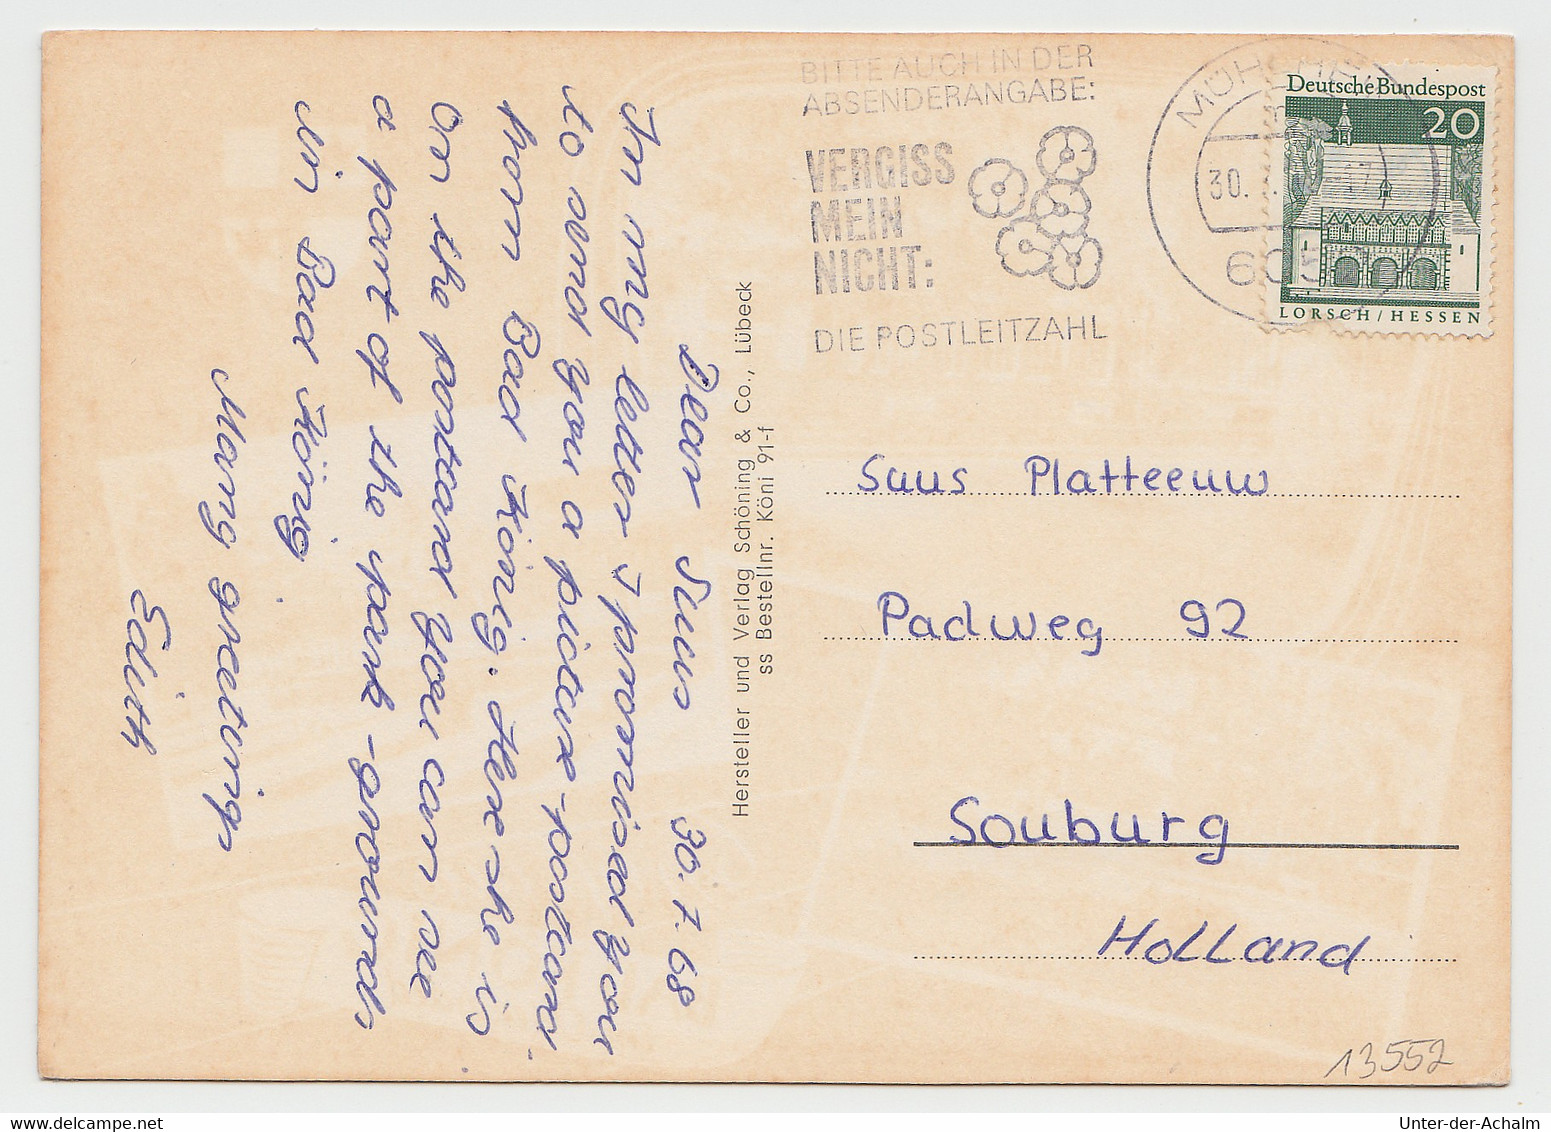 BITTE AUCH IN DER
ABSENDERANGABE:
VERGISS
MEIN
NICHT:
DIE POSTLEITZAHL
30.
605
Deutsche Bundespost
20
LORSCH / HESSEN
Dear Suus 30.7.68
In my letter I promised you
to send you a picture-postcard
from Bad König. Here she is
On the postcard you can see
a part of the park-grounds
in Bad König.
Many greetings
Edith
Hersteller und Verlag Schöning & Co., Lübeck
ss Bestellnr. Köni 91-f
Suus Platteeuw
Padweg 92
Souburg
Holland
13552
www.delcampe.net
Unter-der-Achalm